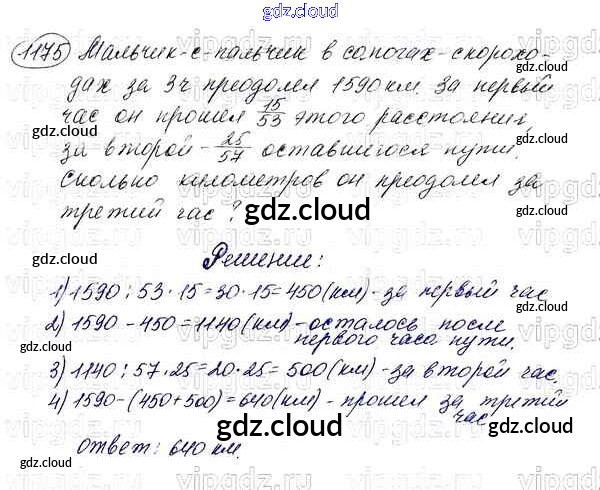 gdz.cloud
1175 Мальчик-с-пальчик в сапогах-скорохо-
дах за 3ч преодолел 1590 км. За первый
час он прошел 15/53 этого расстояния,
за второй - 25/57 оставшегося пути.
Сколько километров он преодолел за
третий час?
gdz.cloud
Решение:
1) 1590 : 53 · 15 = 30 · 15 = 450 (км) - за первый час
2) 1590 - 450 = 1140 (км) - осталось после
первого часа пути.
3) 1140 : 57 · 25 = 20 · 25 = 500 (км) - за второй час.
4) 1590 - (450 + 500) = 640 (км) - прошел за третий
час
Ответ: 640 км.
gdz.cloud